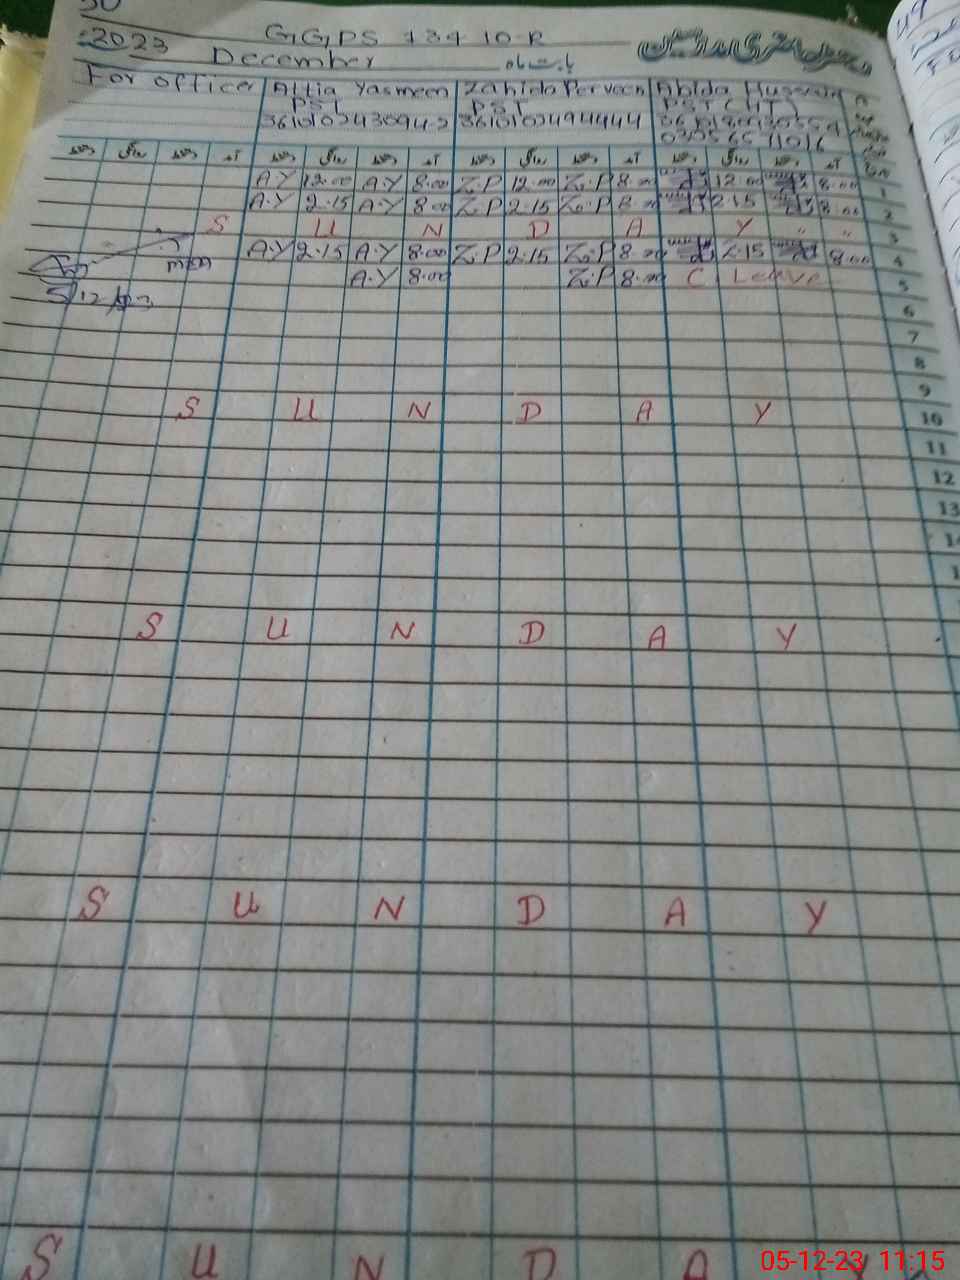 2023 GGPS 134 10-R
December بابت ماہ حاضری مدرسین
For office Attia Yasmeen Zahida Perveen Abida Hussain
PST PST PST (HT)
دستخط روانگی دستخط آمد دستخط روانگی دستخط آمد دستخط روانگی دستخط آمد دستخط روانگی دستخط آمد
A.Y 12.00 A.Y 8.00 Z.P 12.00 Z.P 8.00 12.00 8.00 1
A.Y 2.15 A.Y 8.00 Z.P 2.15 Z.P 8.00 2.15 8.00 2
S U N D A Y " " 3
A.Y 2.15 A.Y 8.00 Z.P 2.15 Z.P 8.00 2.15 8.00 4
A.Y 8.00 Z.P 8.00 C Leave 5
6
7
8
9
S U N D A Y 10
11
12
13
S U N D A Y
S U N D A Y
S U N D A
05-12-23 11:15